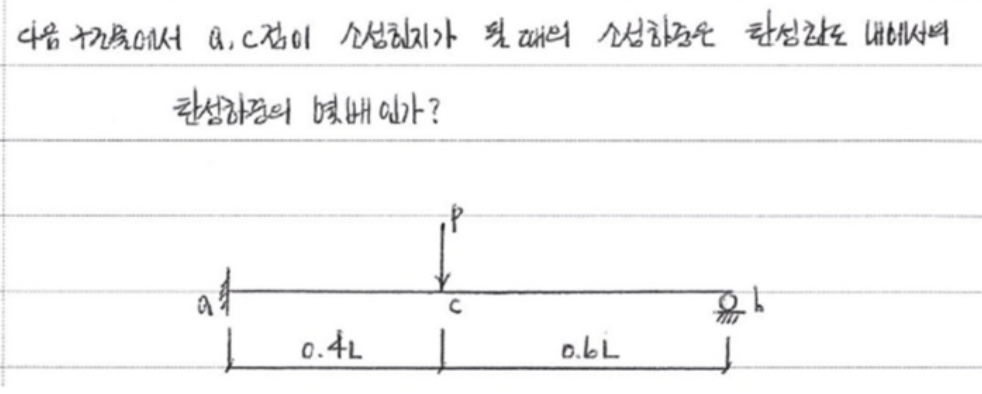 다음 구조물에서 a, c점이 소성힌지가 될 때의 소성하중은 탄성한도 내에서의
탄성하중의 몇배 인가?
P
a
c
b
0.4L
0.6L